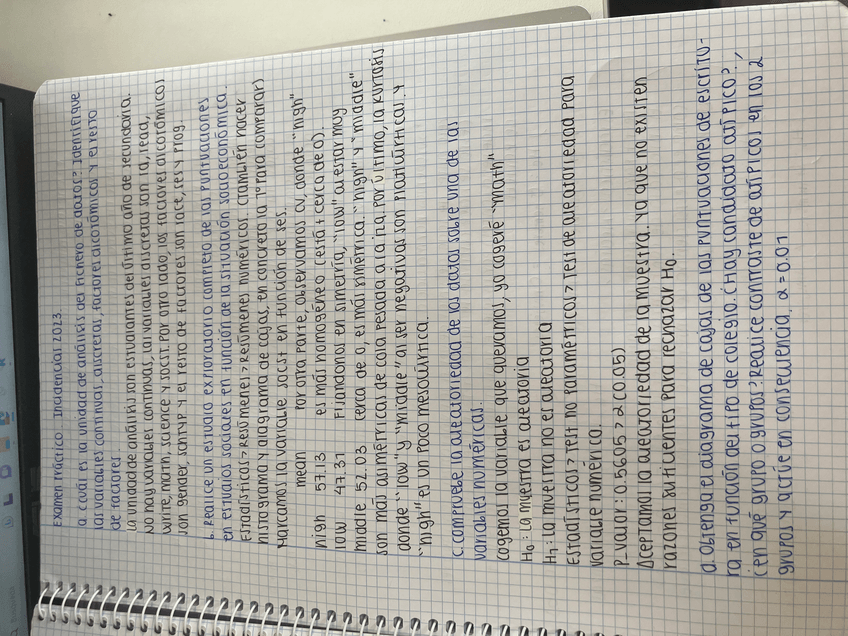 Examen Práctico Incidencias 2023
a. ¿Cuál es la unidad de análisis del fichero de datos? Identifique
las variables continuas, discretas, factores dicotómicos y el resto
de factores.
La unidad de análisis son estudiantes del último año de secundaria.
No hay variables continuas, las variables discretas son id, read,
write, math, science y socst. Por otro lado, los factores dicotómicos
son gender, schtyp y el resto de factores son race, ses y prog.
b. Realice un estudio exploratorio completo de las puntuaciones
en estudios sociales en función de la situación socioeconómica.
Estadísticos > Resúmenes > Resúmenes numéricos. (también hacer
histograma y diagrama de cajas, en concreto la 1º para comparar)
Marcamos la variable socst en función de ses.
mean
high 57.13
low 47.31
middle 52.03
Por otra parte, observamos cv, donde "high"
es más homogéneo (está + cerca de 0).
Fijándonos en simetría, "low" al estar muy
cerca de 0, es más simétrica. "high" y "middle"
son más asimétricas de cola pesada a la izq. Por último, la kurtosis
donde "low" y "middle" al ser negativas son platicúrticas y
"high" es un poco mesocúrtica.
c. Compruebe la aleatoriedad de los datos sobre una de las
variables numéricas.
Cogemos la variable que queramos, yo cogeré "math"
H₀: La muestra es aleatoria
H₁: La muestra no es aleatoria
Estadísticos > Test no paramétricos > Test de aleatoriedad para
variable numérica.
P.valor: 0.5605 > α (0.05)
Aceptamos la aleatoriedad de la muestra. Ya que no existen
razones suficientes para rechazar H₀.
d. Obtenga el diagrama de cajas de las puntuaciones de escritu-
ra en función del tipo de colegio. ¿Hay candidato atípico?
¿en qué grupo o grupos? Realice contraste de atípicos en los 2
grupos y actúe en consecuencia. α = 0.01